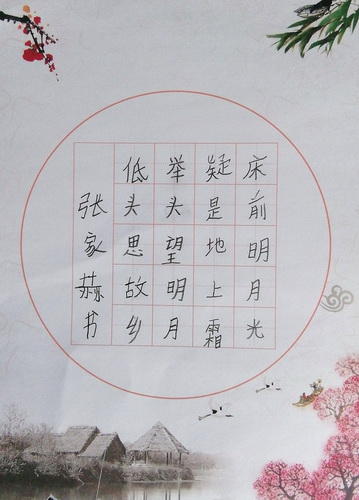 床前明月光
疑是地上霜
举头望明月
低头思故乡
张家赫书